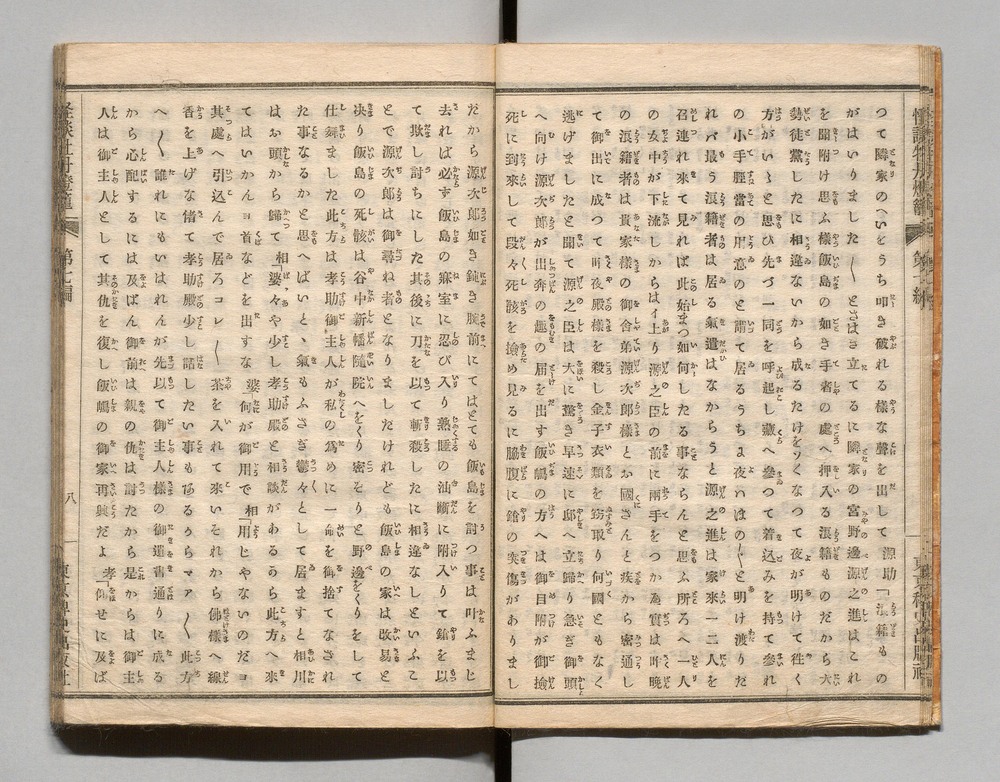 つて隣家のくゞをうち叩き破れる樣な聲を出して 源助「浪籍もの
がはいりました〳〵とさはぎ立てるに隣家の宮野邊源之進はこれ
を聞附け思ふ樣飯島の如き手者の處へ押入る浪籍ものだから大
勢徒黨したに相違ないから成るたけをソくなつて夜が明けて徃く
方がいゝと思ひ先づ一同を呼起し藏へ參つて着込みを持て參れ
の小手脛當の用意のと云つて居るうち夜ハほの〴〵と明け渡りだ
れバ最う浪籍者は居る氣遣はなからうと源之進は家來一二人を
召連れ來て見れば此始末如何したる事ならんと思ふ所ろへ一人
の女中が下流しからはイ上り源之臣の前に兩手をつかゑ實は昨晩
の浪籍者は貴家樣の御舍弟源次郎樣とお國さんと疾から密通し
て御出に成つて昨夜殿樣を殺し金子衣類を窃取り何國ともなく
逃げましたと聞て源之臣は大に驚き早速に邸へ立歸り急ぎ御頭
へ向け源次郎が出奔の趣の届を出す飯嶋の方へは御目附が御撿
死に到來して段々死骸を撿め見るに脇腹に鎗の突傷がありまし
だから源次郎如き鈍き腕前にてはとても飯島を討つ事は叶ふまじ
去れば必ず飯島の寐室に忍び入り熟睡の油斷に附入りて鎗を以
て欺し討ちにした其後に刀を以て斬殺したに相違なしといふこ
とで源次郎は御尋ね者となりましたけれども飯島の家は改易と
决り飯島の死骸は谷中新幡隨院へをくり密をりと野邊をくりをして
仕舞ました此方は孝助御主人が私の爲めに一命を御捨てなされ
た事なるかと思へばいとゞ氣もふさぎ鬱々として居ますと相川
はお頭から歸て 相「婆々や少し孝助殿と相談があるから此方へ來
てはいかんヨ首などを出すな 婆「何か御用で 相「用じやないのだヨ
其處へ引込んで居ろコレ〳〵茶を入れて來いそれから佛樣へ線
香を上げな偖て孝助殿少し話したい事もあるからマア〳〵此方
へ〳〵誰れにもいはれんが先以て御主人樣の御遺書通りに成る
から心配するには及ばん御前は親の仇は討たから是からは御主
人は御主人として其仇を復し飯嶋の御家再興だよ 孝「仰せに及ば
怪談牡丹燈籠 第七編
八
東京稗史出版社